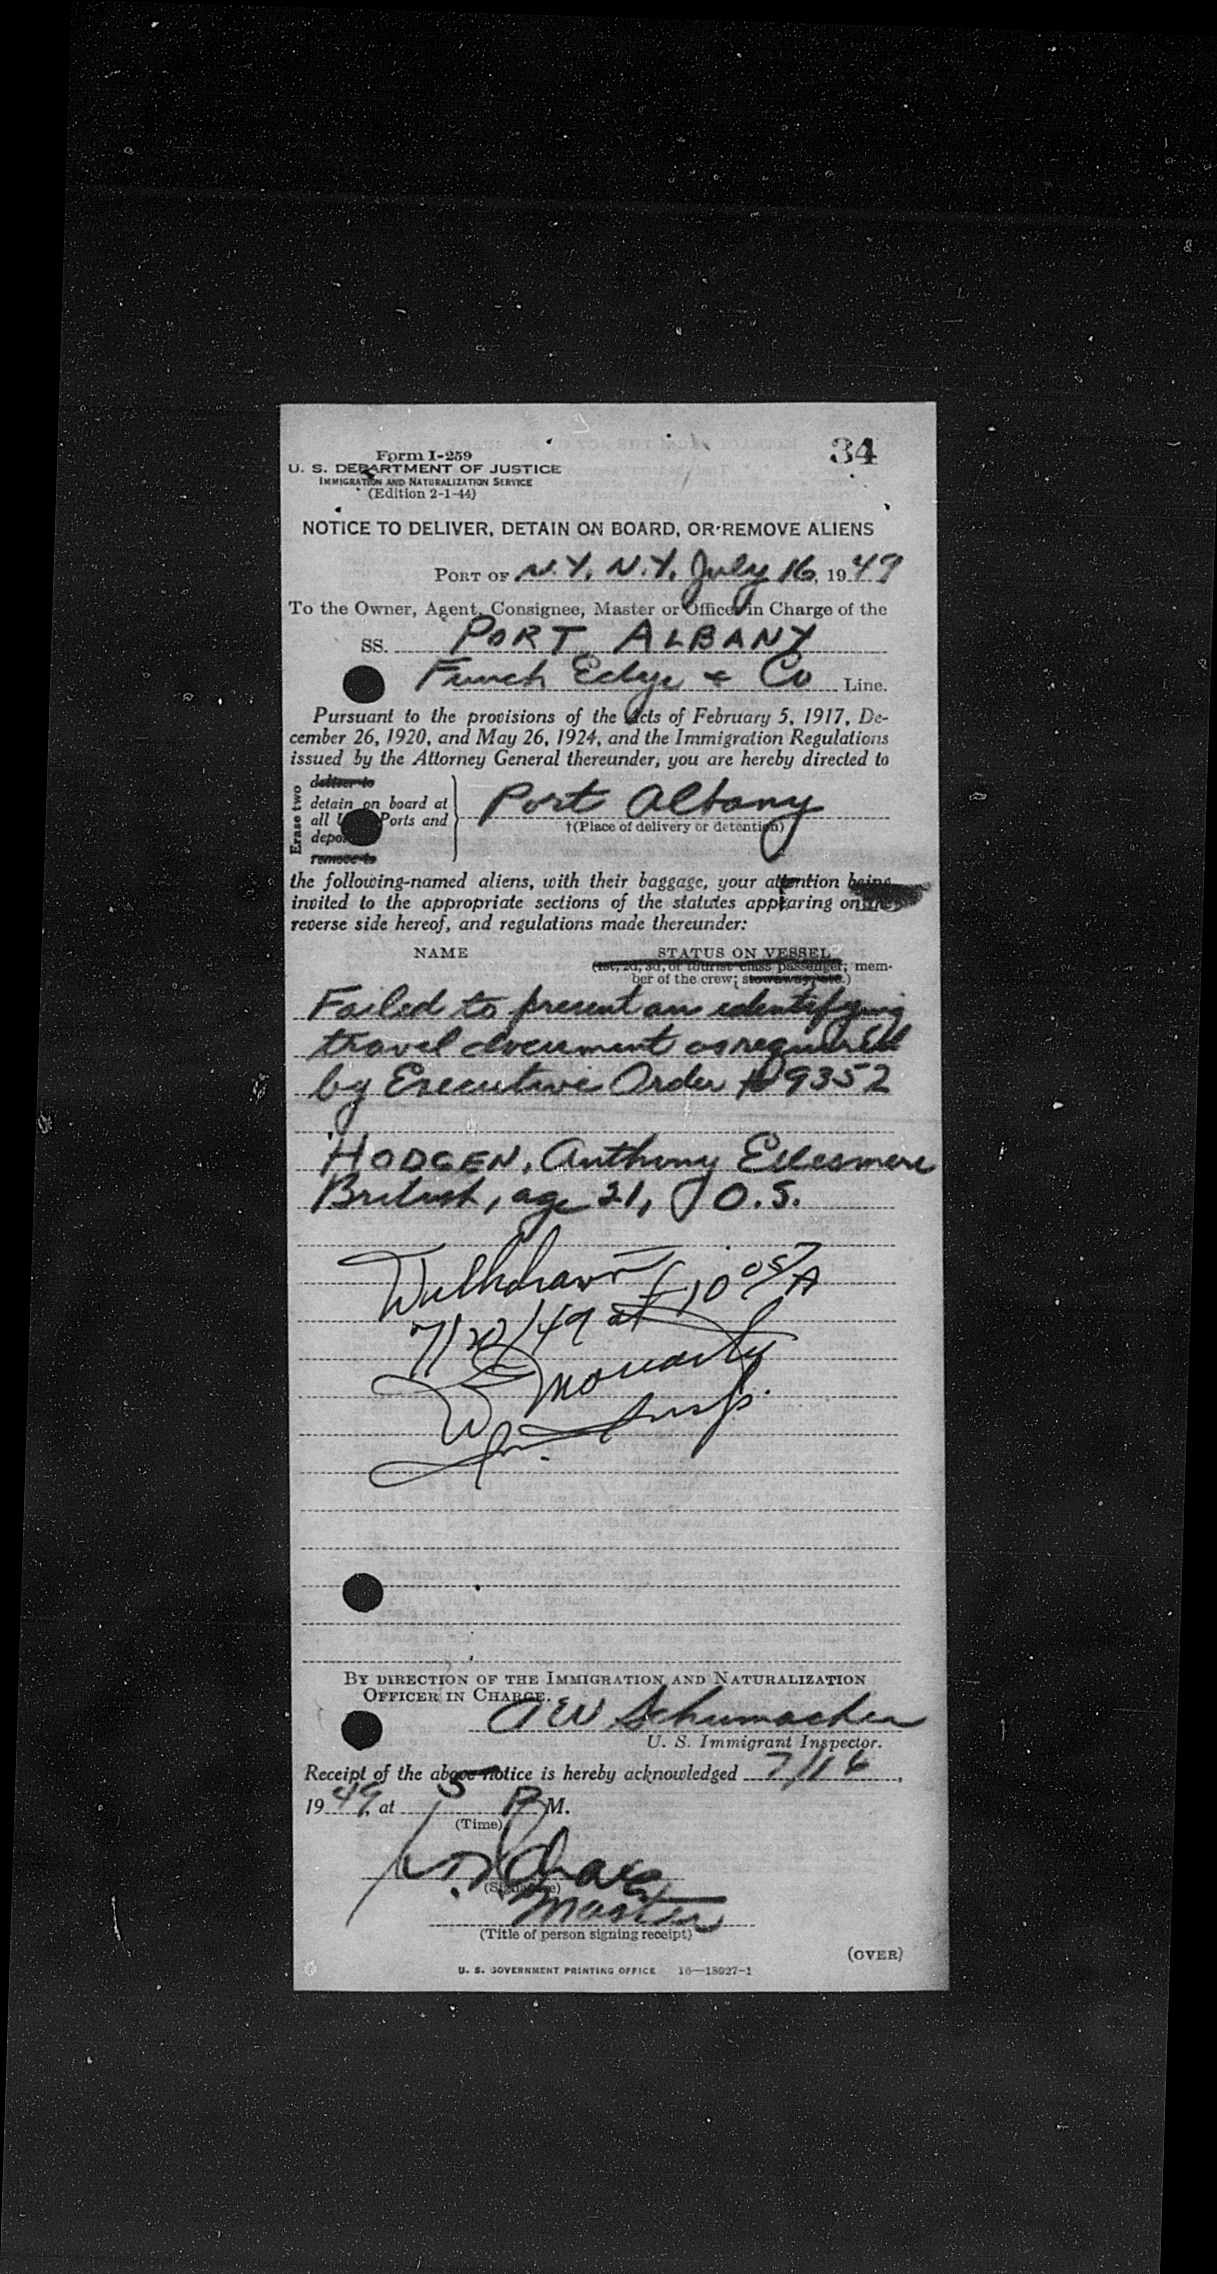 34
Form I-259
U. S. DEPARTMENT OF JUSTICE
IMMIGRATION AND NATURALIZATION SERVICE
(Edition 2-1-44)
NOTICE TO DELIVER, DETAIN ON BOARD, OR REMOVE ALIENS
PORT OF N.Y. N.Y. July 16, 1949
To the Owner, Agent, Consignee, Master or Officer in Charge of the
SS. PORT ALBANY
Funch Edye & Co Line.
Pursuant to the provisions of the Acts of February 5, 1917, De-
cember 26, 1920, and May 26, 1924, and the Immigration Regulations
issued by the Attorney General thereunder, you are hereby directed to
Erase two
deliver to
detain on board at
all Ports and
remove to
Port Albany
†(Place of delivery or detention)
the following-named aliens, with their baggage, your attention being
invited to the appropriate sections of the statutes appearing on the
reverse side hereof, and regulations made thereunder:
NAME STATUS ON VESSEL
(1st, 2d, 3d, or tourist class passenger; mem-
ber of the crew; stowaway, etc.)
Failed to present an identifying
travel document as required
by Executive Order # 9352
HODGEN, Anthony Ellesmere
British, age 21, O.S.
Withdrawn
7/20/49 at 10 05/A
W Moriarty
Insp.
BY DIRECTION OF THE IMMIGRATION AND NATURALIZATION
OFFICER IN CHARGE.
A W Schumacher
U. S. Immigrant Inspector.
Receipt of the above notice is hereby acknowledged 7/16,
1949, at 5 P M.
(Time)
(Signature)
Master
(Title of person signing receipt)
(OVER)
U. S. GOVERNMENT PRINTING OFFICE 16—18027-1